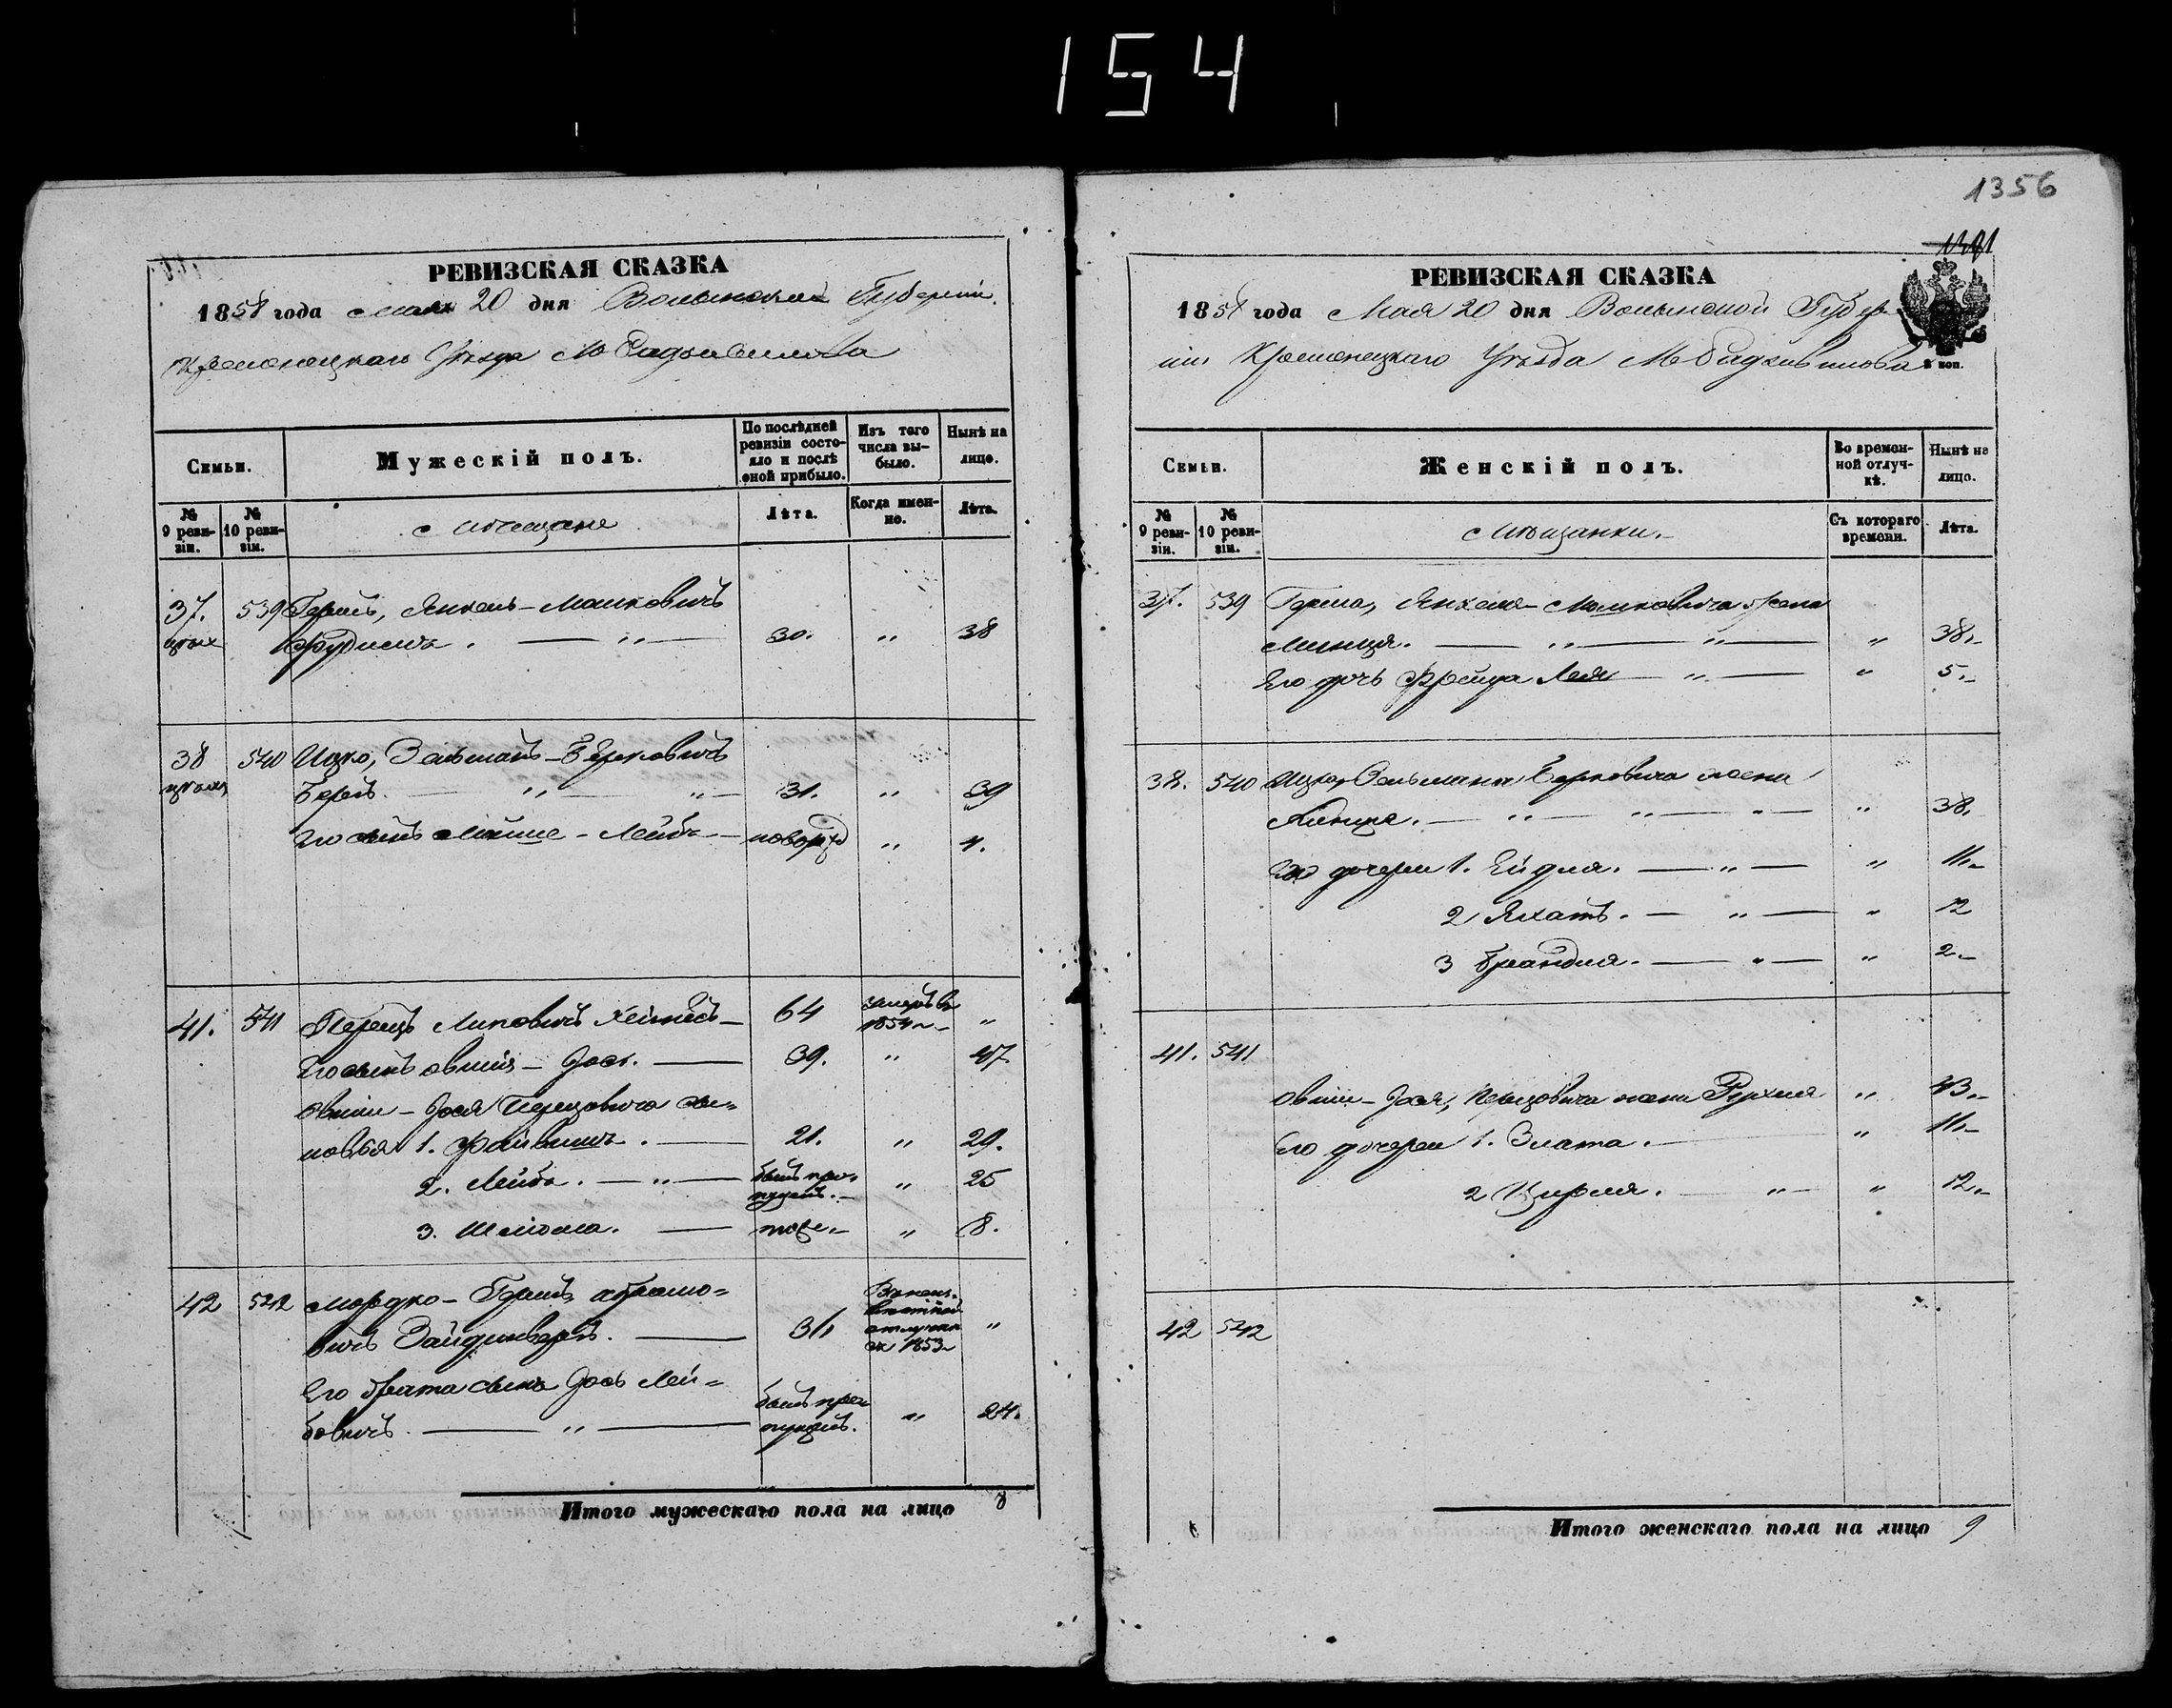 154
РЕВИЗСКАЯ СКАЗКА
1858 года Мая 20 дня Волынской Губерніи
Кременецкаго Уѣзда М Радзивилова
Семьи.
Мужескій полъ.
По послѣдней ревизіи состояло и послѣ оной прибыло.
Изъ того числа выбыло.
Нынѣ на лицо.
№ 9 ревизіи.
№ 10 ревизіи.
Мѣщане
Лѣта.
Когда именно.
Лѣта.
37. 539 Гершъ, Янкель-Мошковичъ
30. " 38
38 540 Ицко, Зельманъ-Берковичъ
Беръ. " " 31. " 39
Его сынъ Мойше-Лейба новорожд " 1.
41. 541 Перецъ Липовичъ 64 умеръ въ 1854 "
Его сынъ Овшія-Іось. 39. " 47
Овшіи-Іося Перецовича сы=
новья 1. Файвишъ. 21. " 29.
2. Лейба. " былъ пропущенъ. " 25
3. Шліома. тоже " 8.
42 542 Мордко-Гершъ Абрамо=
вичъ 31 отлучкѣ 1853 "
Его брата сынъ Іось Лей=
бовичъ " былъ пропущенъ. " 24.
Итого мужескаго пола на лицо 8
1356
РЕВИЗСКАЯ СКАЗКА
1858 года Мая 20 дня Волынской Губер
ніи Кременецкаго Уѣзда М Радзивилова
коп.
Семьи.
Женскій полъ.
Во временной отлучкѣ.
Нынѣ на лицо.
№ 9 ревизіи.
№ 10 ревизіи.
Мѣщанки.
Съ котораго времени.
Лѣта.
37. 539 Герша, Янкеля-Мошковича жена
Минця. " " " 38.
Его дочь Фрейда Лея " " 5.
38. 540 Ицка, Зельмана Берковича жена
" " " " 38.
Его дочери 1. Ейдля. " " 11.
2 Яхатъ. " " 12
3 Брандля. " " 2
41. 541
Овшіи-Іося, Перцовича жена Рухля " 43.
Его дочери 1. Злата. " 11.
2 Цирля. " " 12.
42 542
Итого женскаго пола на лицо 9